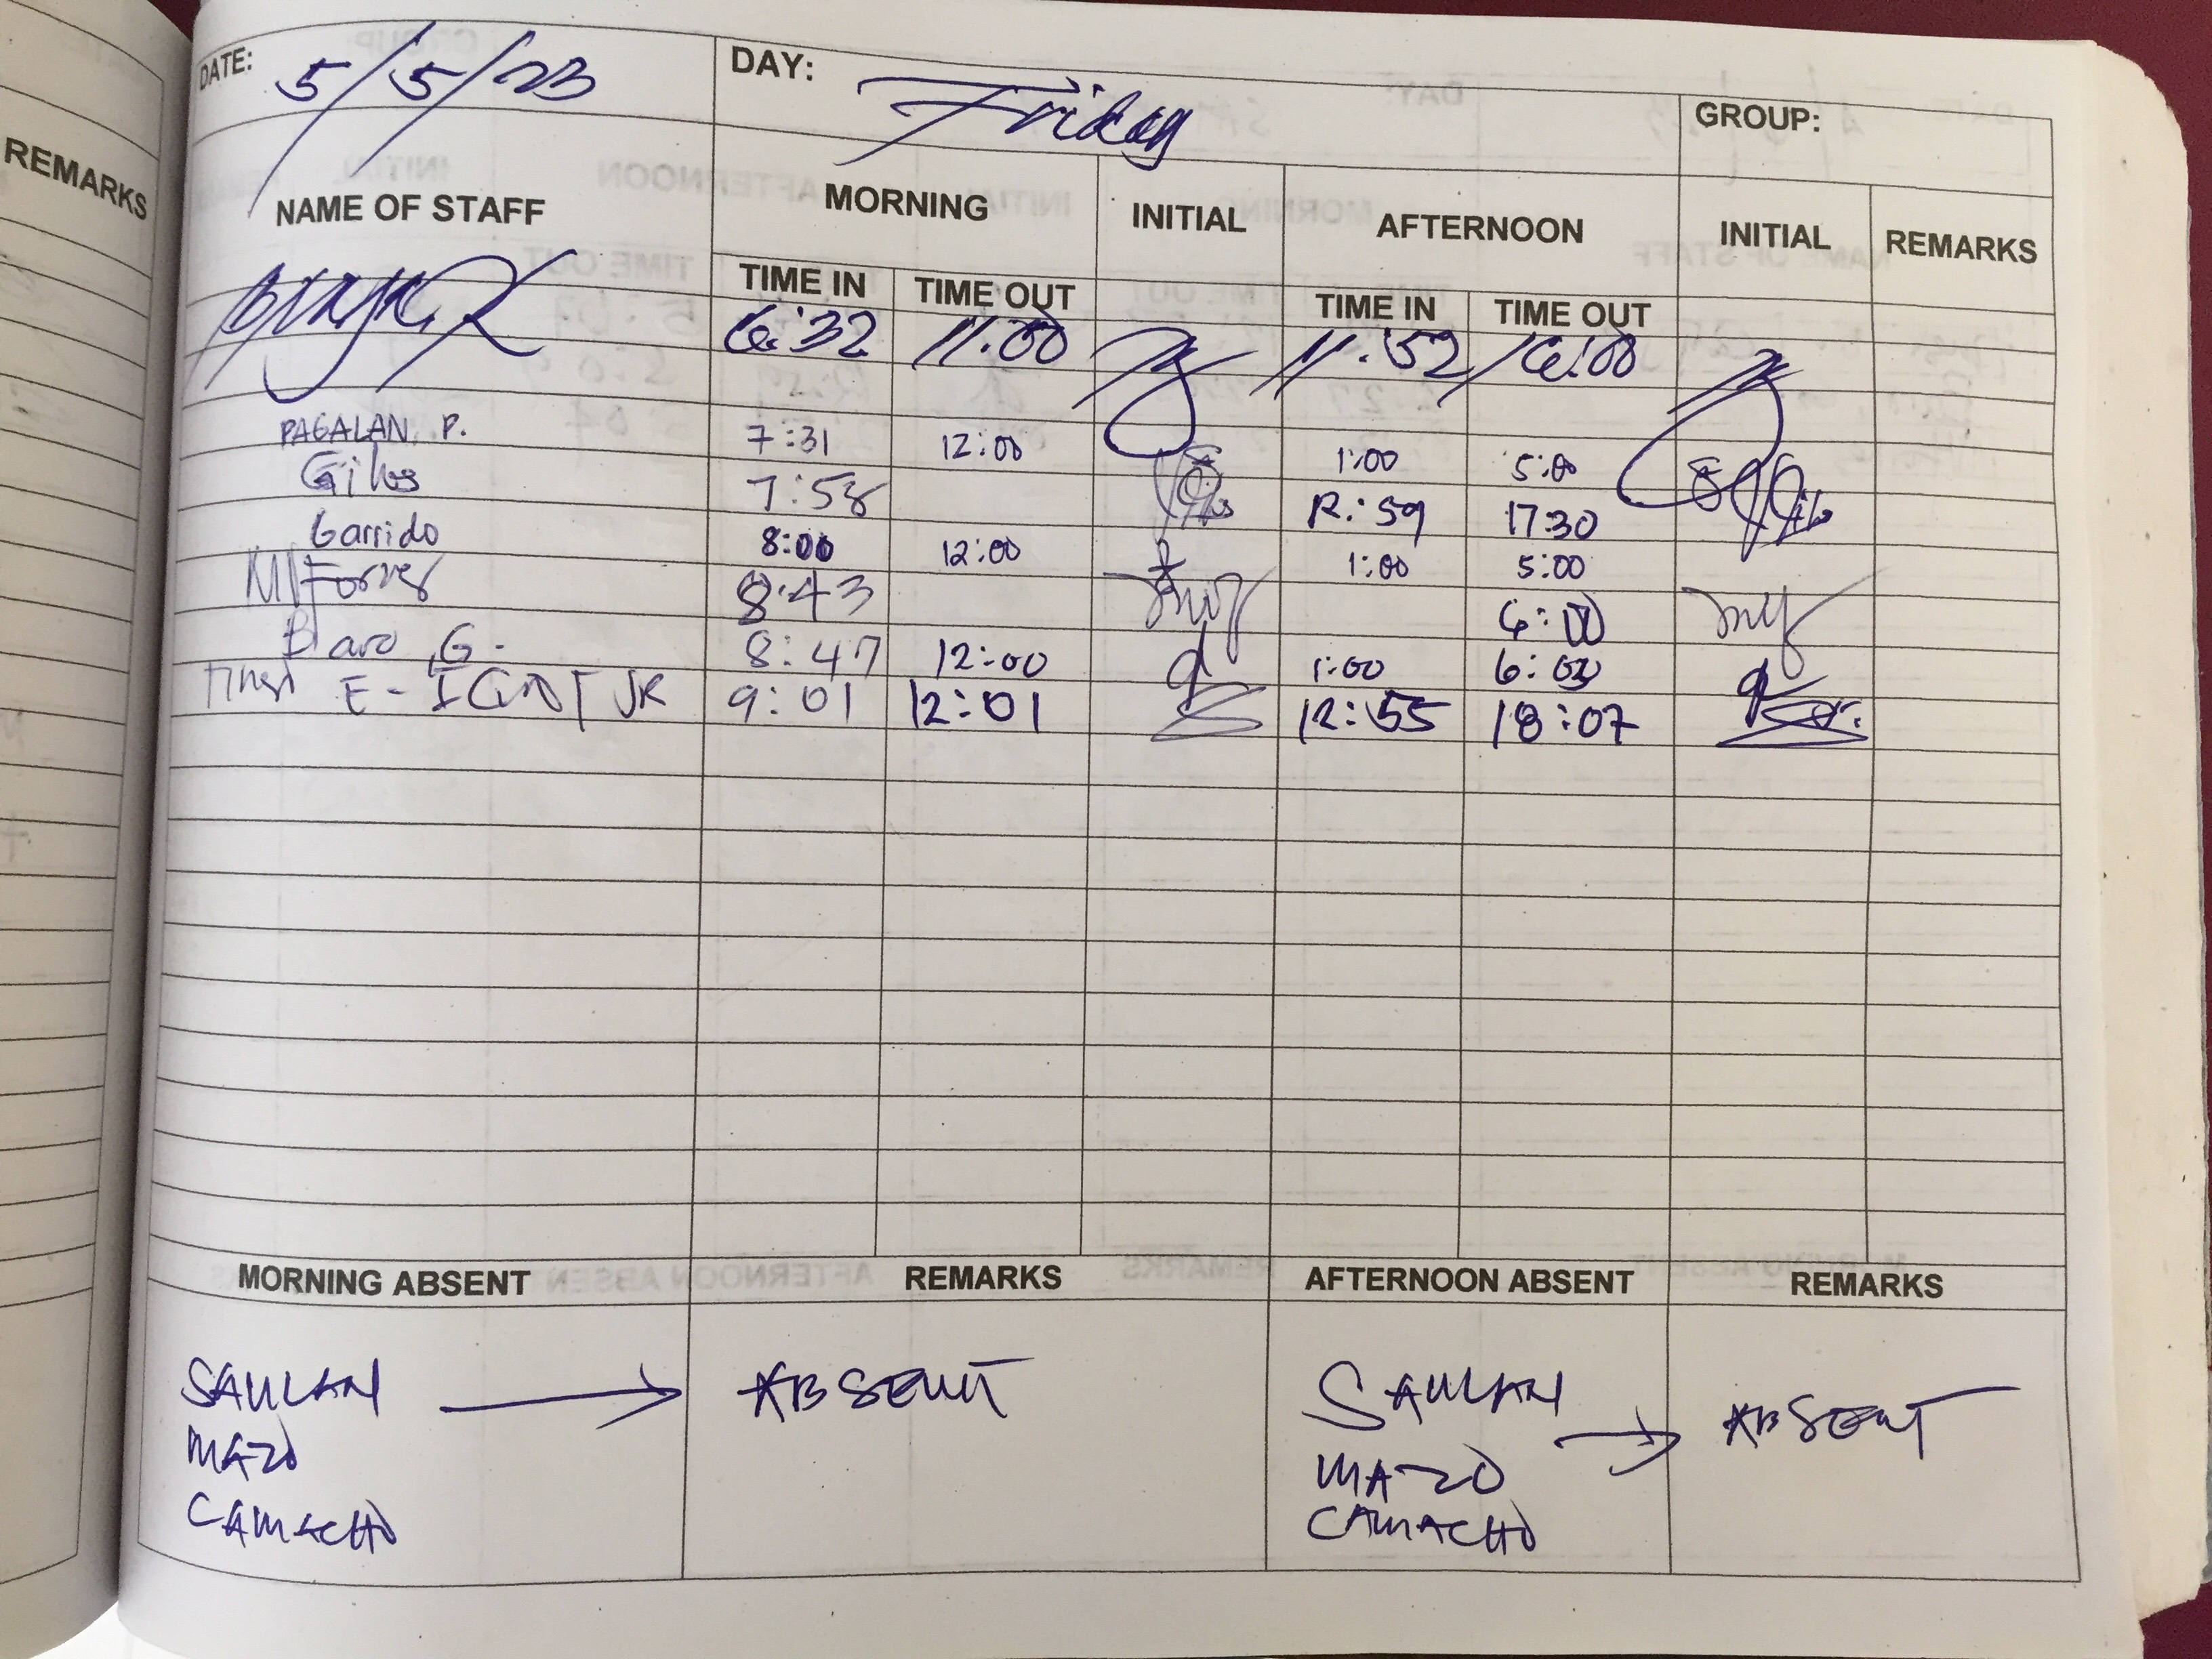 REMARKS
DATE: 5/5/23 DAY: Friday GROUP:
NAME OF STAFF MORNING INITIAL AFTERNOON INITIAL REMARKS
TIME IN TIME OUT TIME IN TIME OUT
6:32 11:00 11:52 16:00
PAGALAN, P. 7:31 12:00 1:00 5:00
7:58 12:59 17:30
Garrido 8:00 12:00 1:00 5:00
8:43 6:00
G. 8:47 12:00 1:00 6:00
JR 9:01 12:01 12:55 18:07
MORNING ABSENT REMARKS AFTERNOON ABSENT REMARKS
SAULAN ABSENT SAULAN ABSENT
MAZO MAZO
CAMACHO CAMACHO